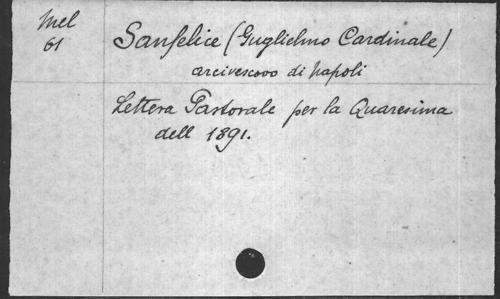 Mel
61
Sanfelice (Guglielmo Cardinale)
arcivescovo di Napoli
Lettera Pastorale per la Quaresima
dell 1891.